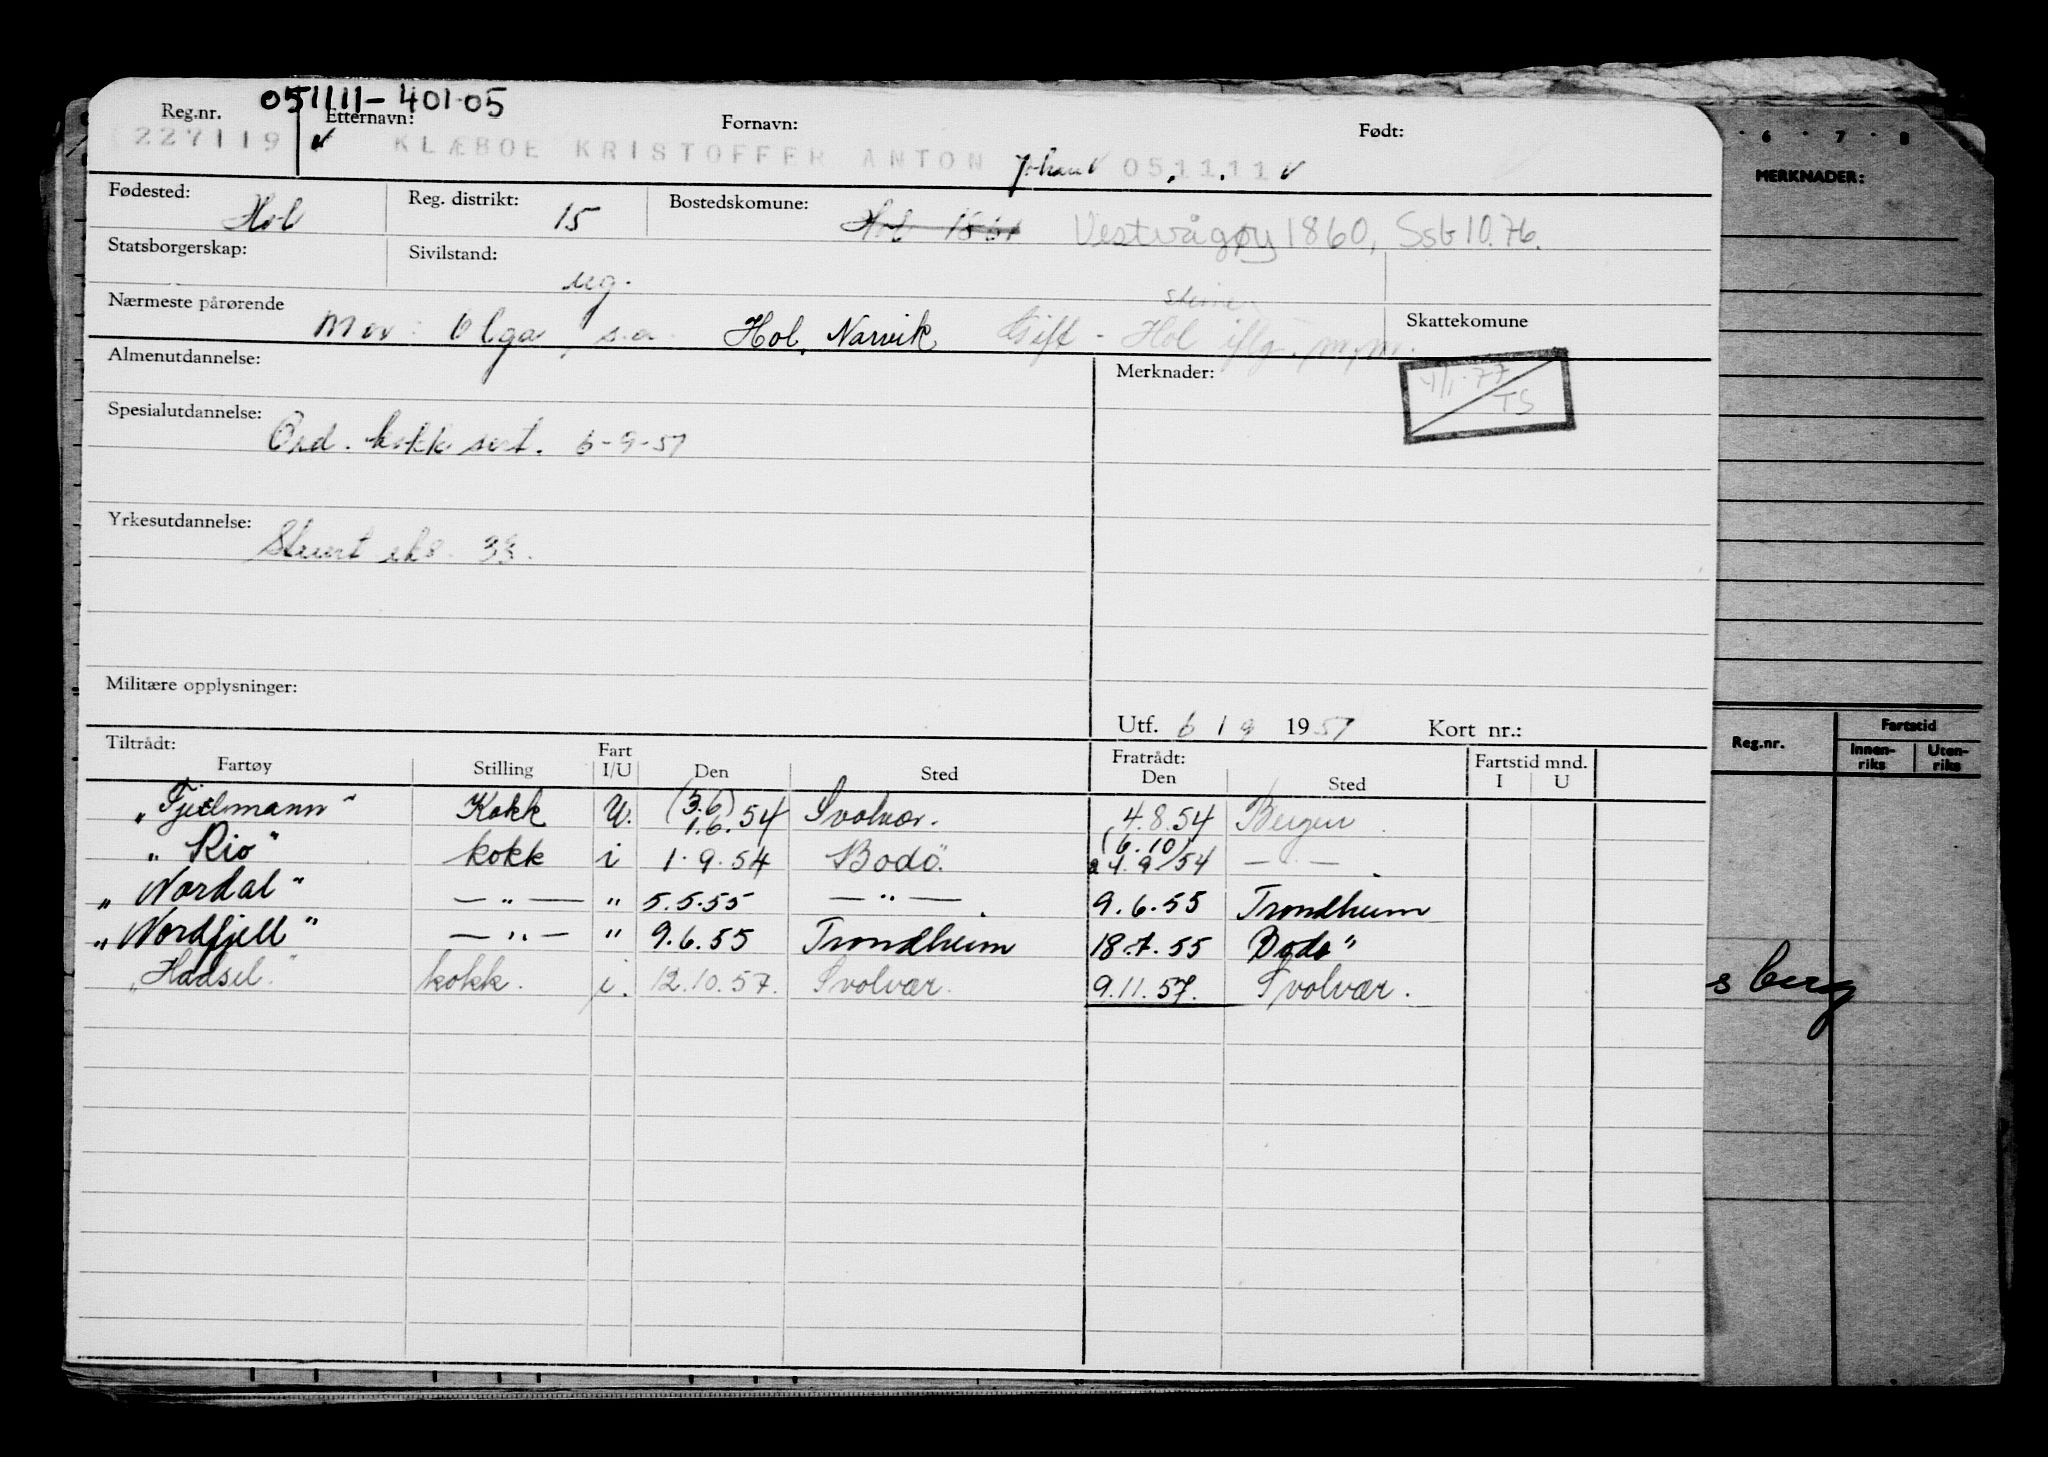 051111-401.05
Reg.nr. Etternavn: Fornavn: Født:
227119 KLÆBOE KRISTOFFER ANTON Johan 05.11.11
Fødested: Hol Reg. distrikt: 15 Bostedskomune: Vestvågøy 1860, Ssb 10.76.
Statsborgerskap: Sivilstand: ug.
Nærmeste pårørende Mor: Olga, s.a. Hol, Narvik Gift - Hol iflg. m.m. Skattekomune
Almenutdannelse: Merknader: 4/1.77 TS
Spesialutdannelse: Ord. kokk sert. 6-9-51
Yrkesutdannelse: Stuert eks. 33.
Militære opplysninger:
Utf. 6 / 9 1951 Kort nr.:
Tiltrådt: Fratrådt: Fartstid mnd.
Fartøy Stilling Fart I/U Den Sted Den Sted I U
„Fjellmann" Kokk U. (3.6) 1.6.54 Svolvær. 4.8.54 Bergen
„Rio" kokk i 1.9.54 Bodö. (6.10) 24.9.54 — " —
„Nordal" — " — " 5.5.55 — " — 9.6.55 Trondheim
„Nordfjell" — " — " 9.6.55 Trondheim 18.7.55 Bodo"
„Hadsel." kokk. i. 12.10.57. Svolvær. 9.11.57. Svolvær.
6 7 8
MERKNADER:
Reg.nr. Fartstid
Innen-riks Uten-riks
sberg